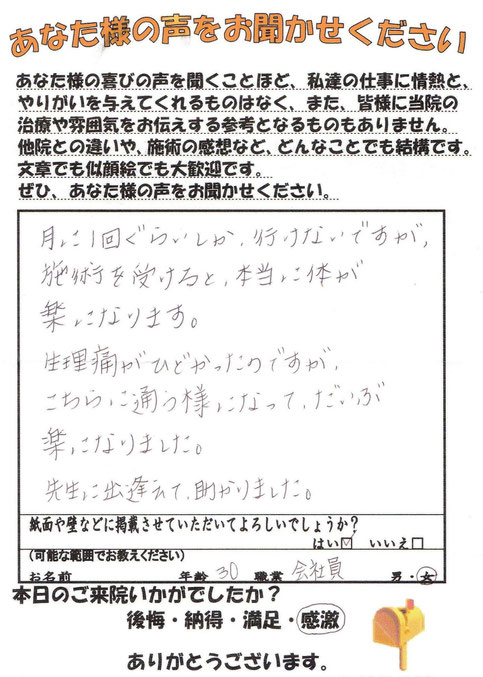 あなた様の声をお聞かせください
あなた様の喜びの声を聞くことほど、私達の仕事に情熱と、
やりがいを与えてくれるものはなく、また、皆様に当院の
治療や雰囲気をお伝えする参考となるものもありません。
他院との違いや、施術の感想など、どんなことでも結構です。
文章でも似顔絵でも大歓迎です。
ぜひ、あなた様の声をお聞かせください。
月に1回ぐらいしか、行けないですが、
施術を受けると、本当に体が
楽になります。
生理痛がひどかったのですが、
こちらに通う様になって、だいぶ
楽になりました。
先生に出逢えて、助かりました。
紙面や壁などに掲載させていただいてよろしいでしょうか?
はい☑ いいえ□
(可能な範囲でお教えください)
お名前 年齢 30 職業 会社員 男・女
本日のご来院いかがでしたか?
後悔・納得・満足・感激
ありがとうございます。